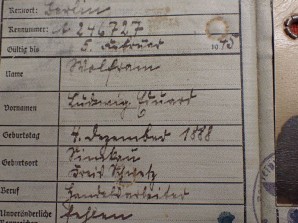 Kennort: Berlin
Kennummer: A 246727
Gültig bis 5. Februar 1945
Name Wolfram
Vornamen Ludwig Eduard
Geburtstag 4. Dezember 1888
Geburtsort
Kreis Schwetz
Beruf Handelsarbeiter
Unveränderliche fehlen